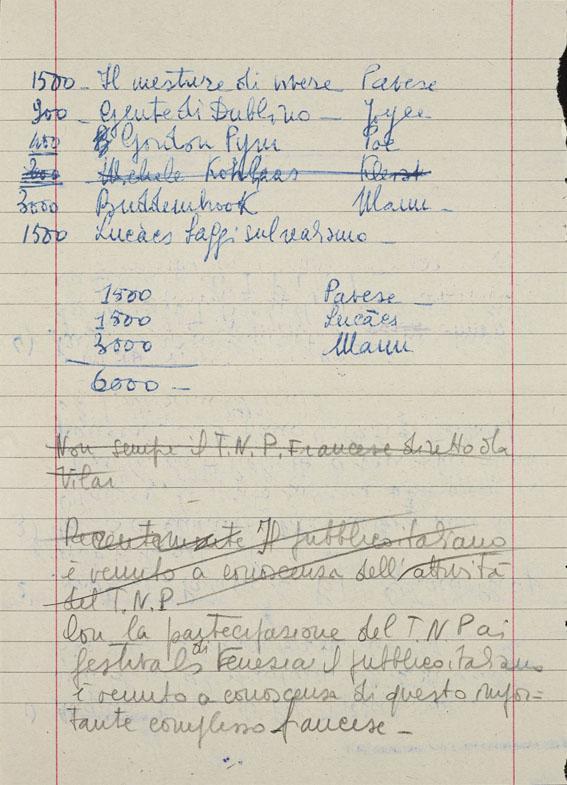 1500 - Il mestiere di vivere Pavese
900 - Gente di Dublino - Joyce
400 Gordon Pym Poe
300 Michele Kohlaas Kleist
3000 Buddembrook Mann -
1500 Lucàcs Saggi sul realismo -
1500 Pavese -
1500 Lucàcs
3000 Mann
6000 -
Non sempe il T.N.P. Francese diretto da
Vilar
Recentemente Il pubblico italiano
è venuto a conoscenza dell'attività
del T.N.P
Con la partecipazione del T.N.P ai
festivals di Venezia il pubblico italiano
è venuto a conoscenza di questo impor-
tante complesso francese -